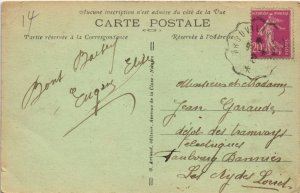 14
Aucune inscription n'est admise du côté de la Vue
CARTE POSTALE
Partie réservée à la Correspondance
Réservée à l'Adresse
20
Bont Baiser
Eugène
Monsieur et Madame
Jean Garaude
dépôt des tramways
electriques
Faubourg Bannier
Les Aydes Loiret